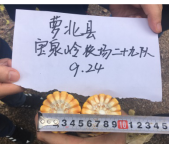 萝北县
宝泉岭农场二十九队
9.24
1 2 3 4 5 6 7 8 9 10 1 2 3 4 5